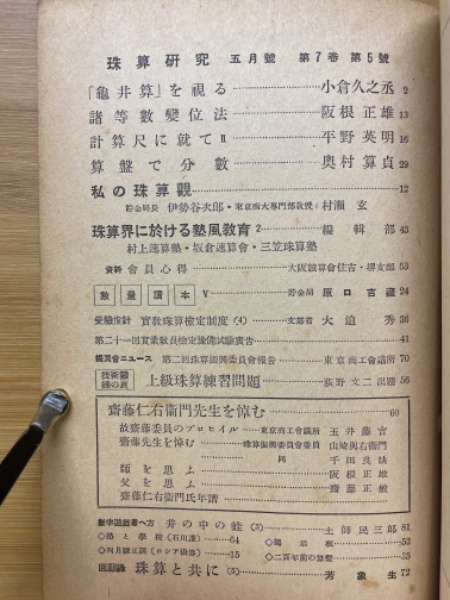 珠算研究 五月號 第7卷 第5號
「龜井算」を視る 小倉久之丞 2
諸等數變位法 阪根正雄 13
計算尺に就てⅡ 平野英明 16
算盤で分數 奥村算貞 29
私の珠算觀 12
貯金局長 伊勢谷次郎・東京商大專門部敎授 村瀨玄
珠算界に於ける塾風敎育 2 編輯部 43
村上速算塾・坂倉速算會・三笠珠算塾
資料 會員心得 大阪 算會住吉・堺支部 53
數量讀本 Ⅴ 貯金局 原口吉藏 24
受驗指針 實敎珠算檢定制度(4) 文部省 大迫秀 36
第二十一回實業敎員檢定豫備試驗廣吿 41
振興會ニュース 第二回珠算振興委員會報吿 東京商工會議所 70
技術鍛錬の頁 上級珠算練習問題 荻野文二出題 56
齋藤仁右衞門先生を悼む 60
故齋藤委員のプロヒイル 東京商工會議所 玉井藤吉
齋藤先生を悼む 珠算振興委員會委員 山崎與右衞門
同 千田良
師を思ふ 阪根正雄
父を思ふ 齋藤正敏
齋藤仁右衞門氏年譜
數字遊戲者へ方 井の中の蛙(3) 土師民三郎 81
◇ と學校(石川謙) 64 ◇ 示板 52
◇四月號正誤(ロシア 15 ◇二百年前の 35
回顧錄 珠算と共に(6) 芳象生 72